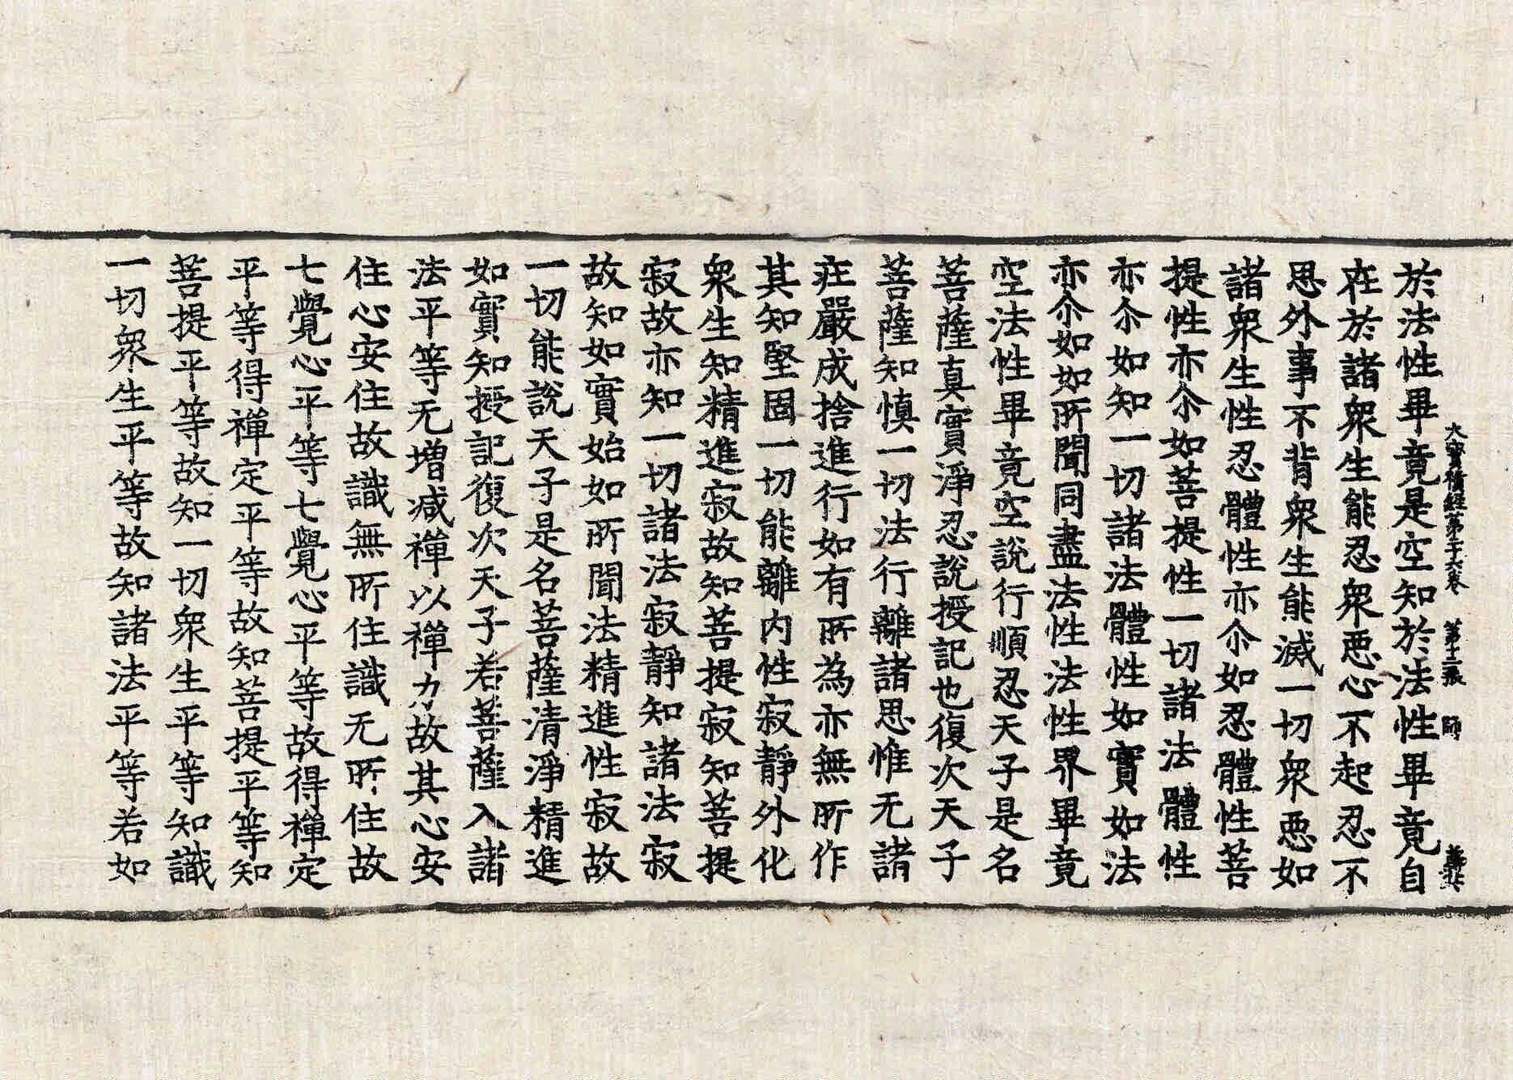 大寶積經第二十六卷 第十二張 師
於法性畢竟是空知於法性畢竟自
在於諸衆生能忍衆悪心不起忍不
思外事不背衆生能滅一切衆悪如
諸衆生性忍體性亦尒如忍體性菩
提性亦尒如菩提性一切諸法體性
亦尒如知一切諸法體性如實如法
亦尒如如所聞同盡法性法性界畢竟
空法性畢竟空說行順忍天子是名
菩薩真實淨忍說授記也復次天子
菩薩知慎一切法行離諸思惟无諸
莊嚴成捨進行如有所為亦無所作
其知堅固一切能離内性寂靜外化
衆生知精進寂故知菩提寂知菩提
寂故亦知一切諸法寂靜知諸法寂
故知如實始如所聞法精進性寂故
一切能說天子是名菩薩清淨精進
如實知授記復次天子若菩薩入諸
法平等无增减禪以禪力故其心安
住心安住故識無所住識无所住故
七覺心平等七覺心平等故得禪定
平等得禪定平等故知菩提平等知
菩提平等故知一切衆生平等知識
一切衆生平等故知諸法平等若如